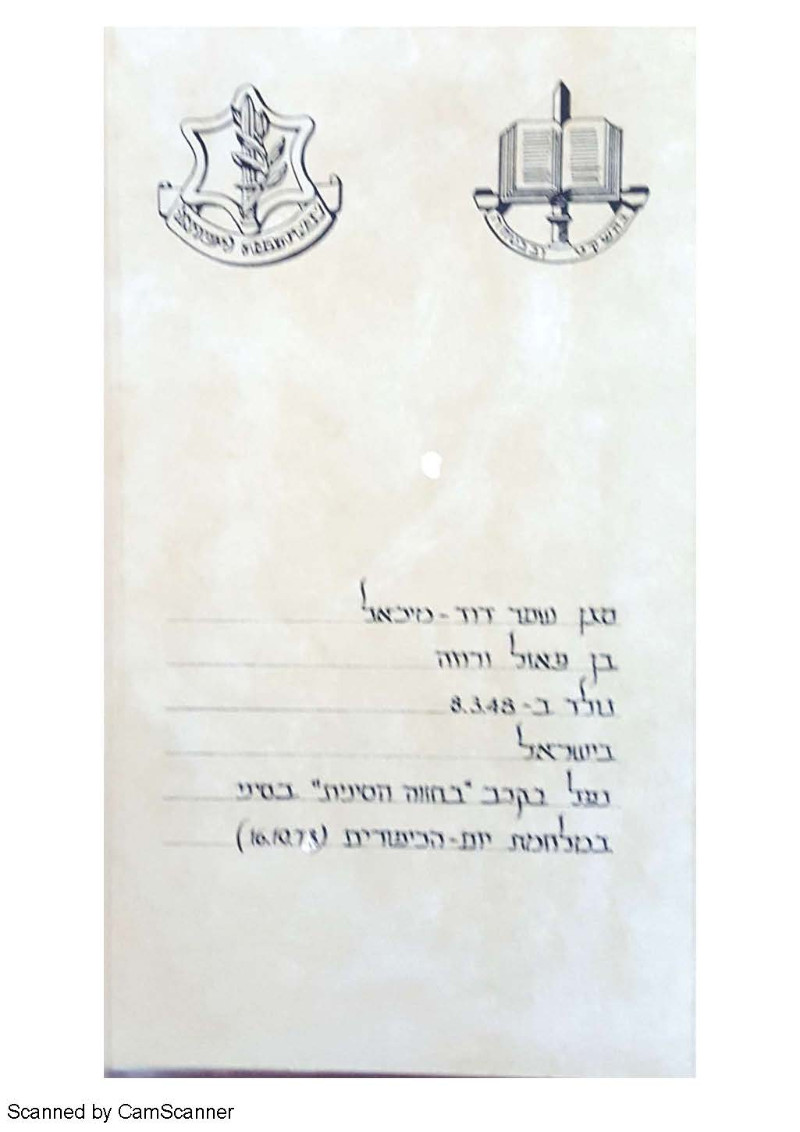 צבא הגנה לישראל
סגן דוד-מיכאל
בן פאול ורוזה
נולד ב-8.3.48
בישראל
נפל בקרב "בחווה הסינית" בסיני
במלחמת יום-הכיפורים (16.10.73)
Scanned by CamScanner